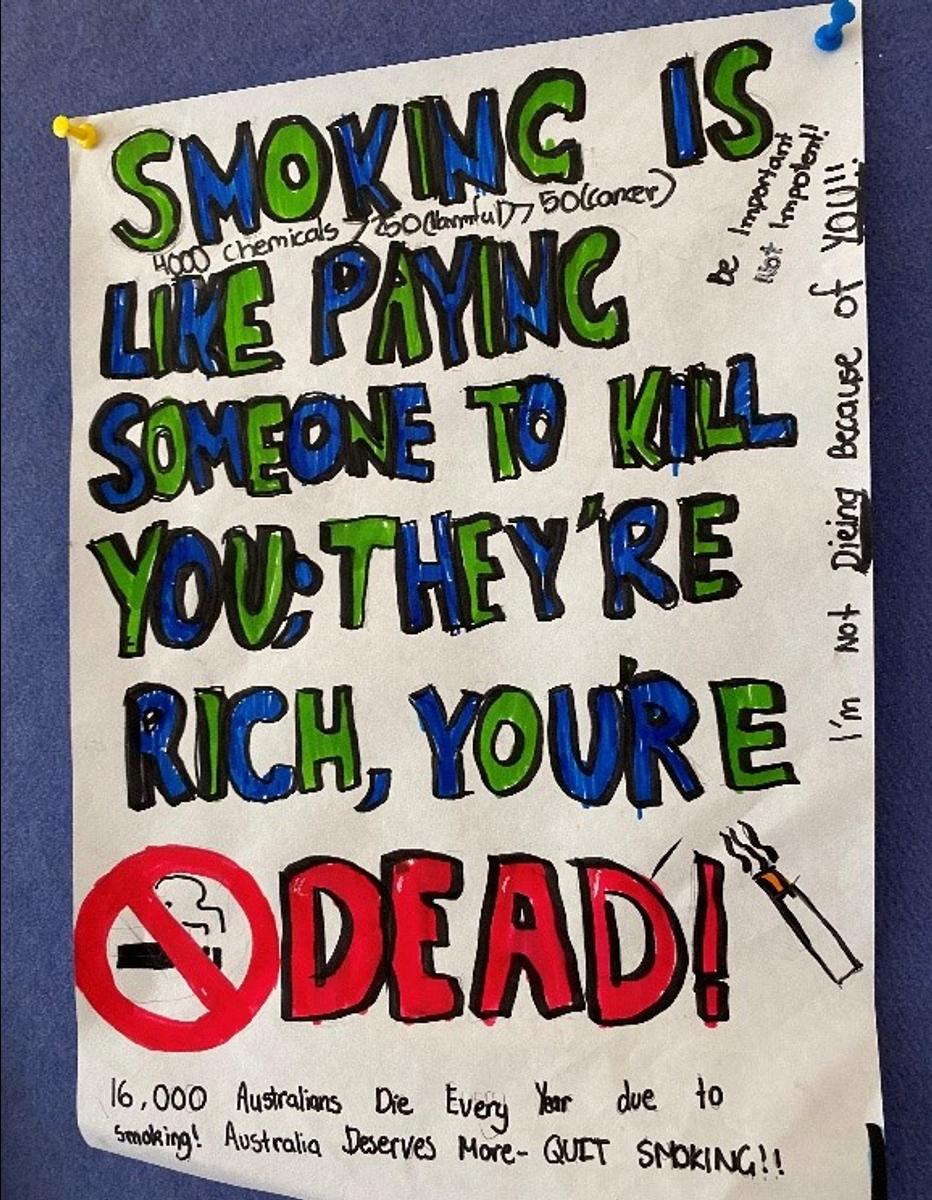 SMOKING IS
4000 chemicals → 250 (harmful) → 50 (cancer)
LIKE PAYING
SOMEONE TO KILL
YOU; THEY'RE
RICH, YOU'RE
DEAD!
16,000 Australians Die Every Year due to
smoking! Australia Deserves More- QUIT SMOKING!!
Be Important
Not Impotent!
I'm Not Dieing Because of YOU!!